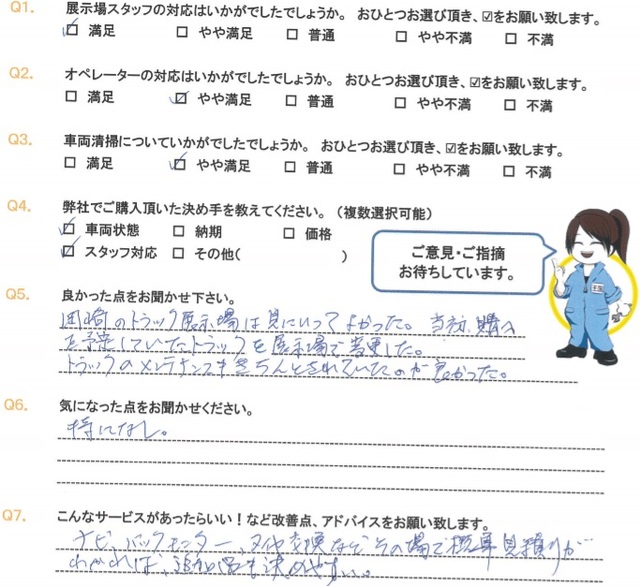 Q1. 展示場スタッフの対応はいかがでしたでしょうか。 おひとつお選び頂き、☑をお願い致します。
☑ 満足 □ やや満足 □ 普通 □ やや不満 □ 不満
Q2. オペレーターの対応はいかがでしたでしょうか。 おひとつお選び頂き、☑をお願い致します。
□ 満足 ☑ やや満足 □ 普通 □ やや不満 □ 不満
Q3. 車両清掃についていかがでしたでしょうか。 おひとつお選び頂き、☑をお願い致します。
□ 満足 ☑ やや満足 □ 普通 □ やや不満 □ 不満
Q4. 弊社でご購入頂いた決め手を教えてください。（複数選択可能）
☑ 車両状態 □ 納期 □ 価格
☑ スタッフ対応 □ その他( )
ご意見・ご指摘
お待ちしています。
Q5. 良かった点をお聞かせ下さい。
岡崎のトラック展示場は見にいってよかった。当初、購入
を予定していたトラックを展示場で変更した。
トラックのメンテナンスもきちんとされていたのが良かった。
Q6. 気になった点をお聞かせください。
特になし。
Q7. こんなサービスがあったらいい！など改善点、アドバイスをお願い致します。
ナビ、バックモニター、タイヤ交換などその場で概算見積りが
わかれば、追加品も決めやすい。